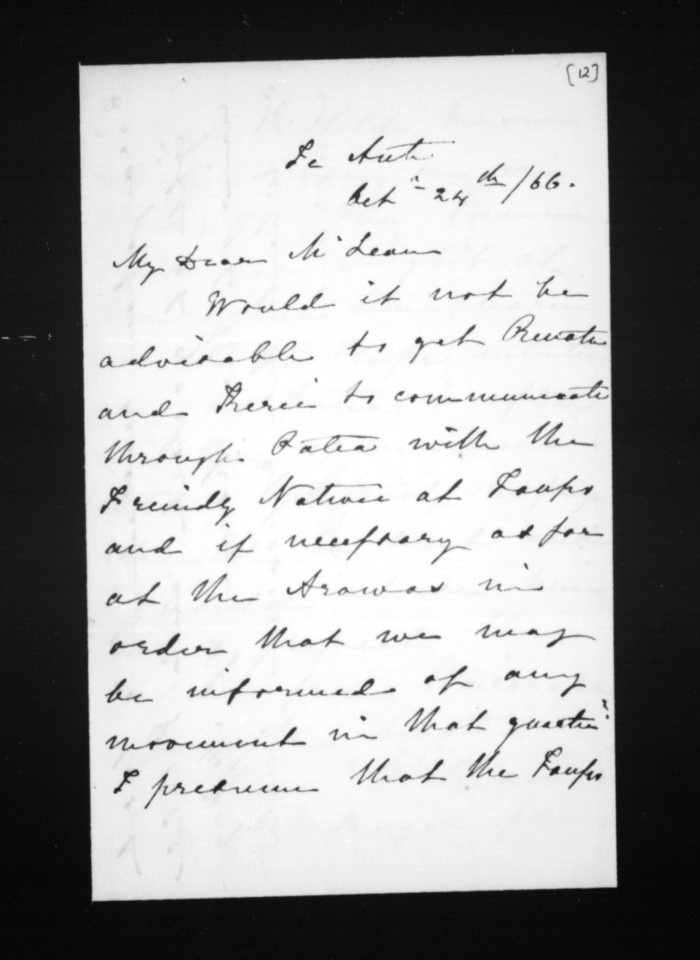 [12]
Te Aute
Octr 24th/66.
My Dear McLean
Would it not be
advisable to get Renata
and to communicate
through Patea with the
Freindly Natives at Taupo
and if necessary as far
at the Arawas in
order that we may
be informed of any
movement in that quarter?
I presume that the Taupo